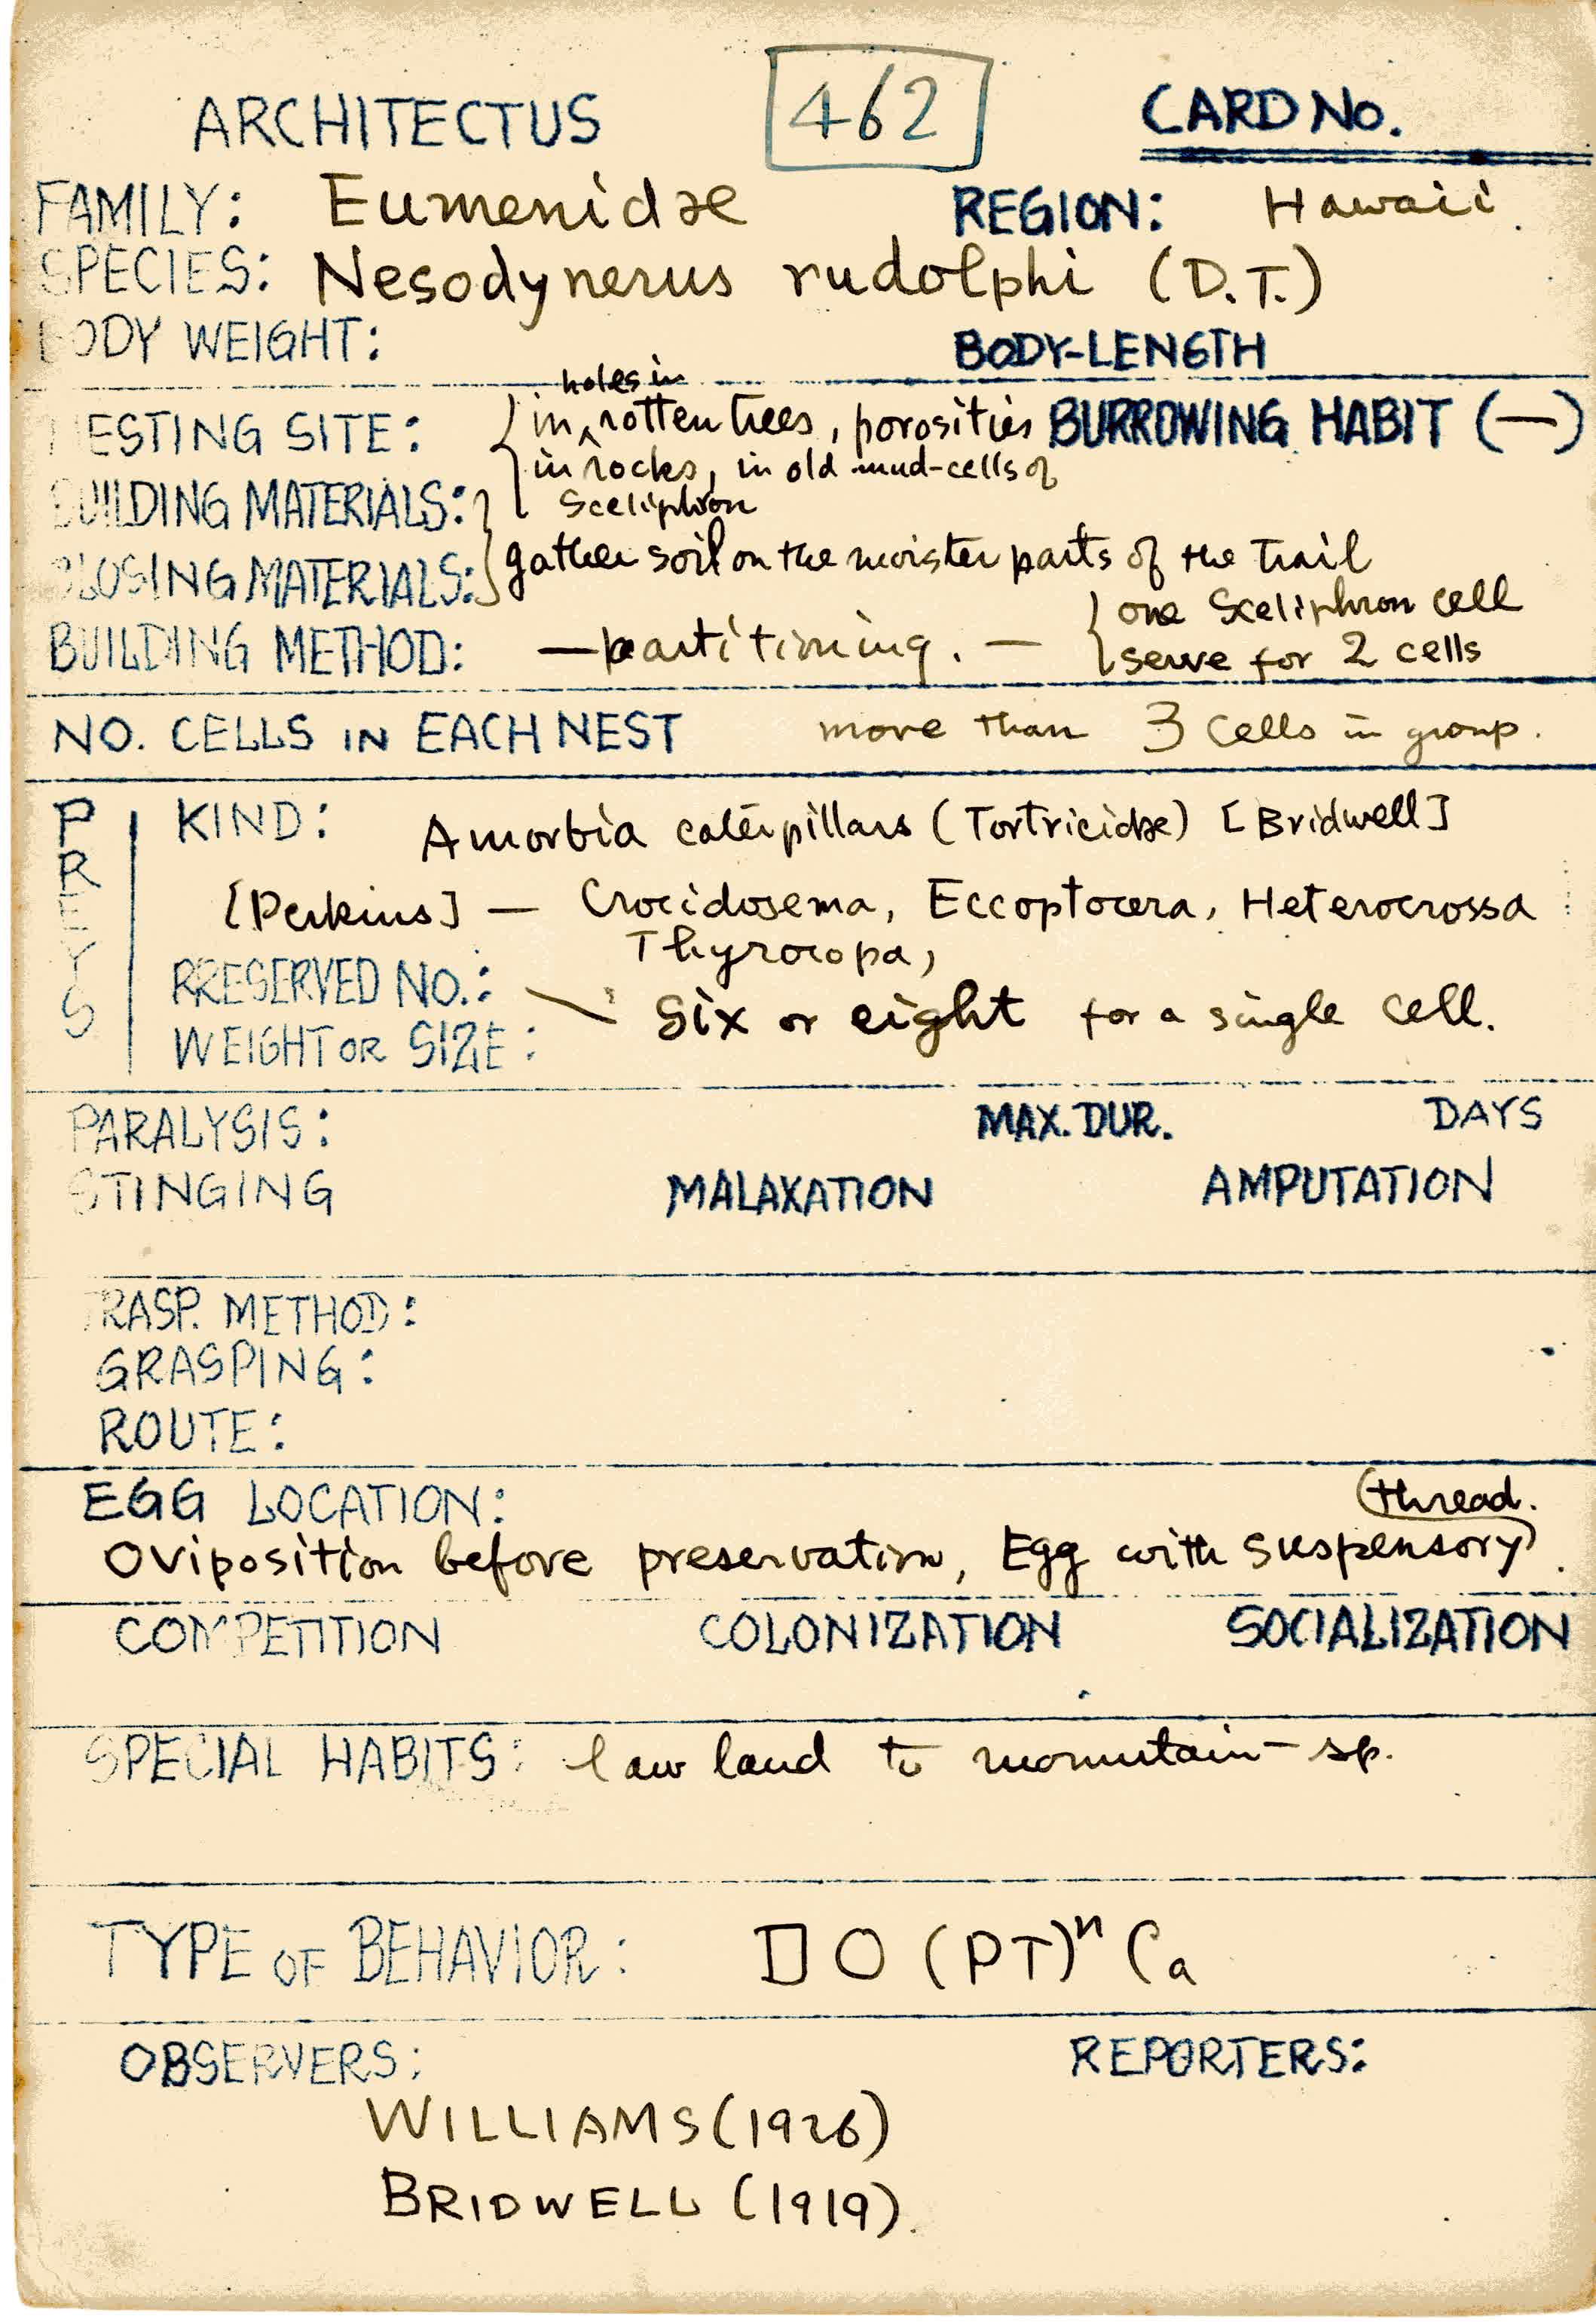 ARCHITECTUS 462 CARD NO.
FAMILY: Eumenidae REGION: Hawaii.
SPECIES: Nesodynerus rudolphi (D.T.)
BODY WEIGHT: BODY-LENGTH
holes in
NESTING SITE: in rotten trees, porosities BURROWING HABIT (—)
in rocks, in old mud-cells of
BUILDING MATERIALS: Sceliphron
CLOSING MATERIALS: gather soil on the moister parts of the trail
one Sceliphron cell
BUILDING METHOD: — partitioning. — serve for 2 cells
NO. CELLS IN EACH NEST more than 3 cells in group.
PREYS KIND: Amorbia caterpillars (Tortricidae) [Bridwell]
[Perkins] — Crocidosema, Eccoptocera, Heterocrossa
Thyrocopa,
RRESERVED NO.: six or eight for a single cell.
WEIGHT OR SIZE:
PARALYSIS: MAX. DUR. DAYS
STINGING MALAXATION AMPUTATION
TRASP. METHOD:
GRASPING:
ROUTE:
EGG LOCATION: thread.
Oviposition before preservation, Egg with suspensory.
COMPETITION COLONIZATION SOCIALIZATION
SPECIAL HABITS: law land to mountain-sp.
TYPE OF BEHAVIOR: O (PT)ⁿ Ca
OBSERVERS: REPORTERS:
WILLIAMS (1926)
BRIDWELL (1919).